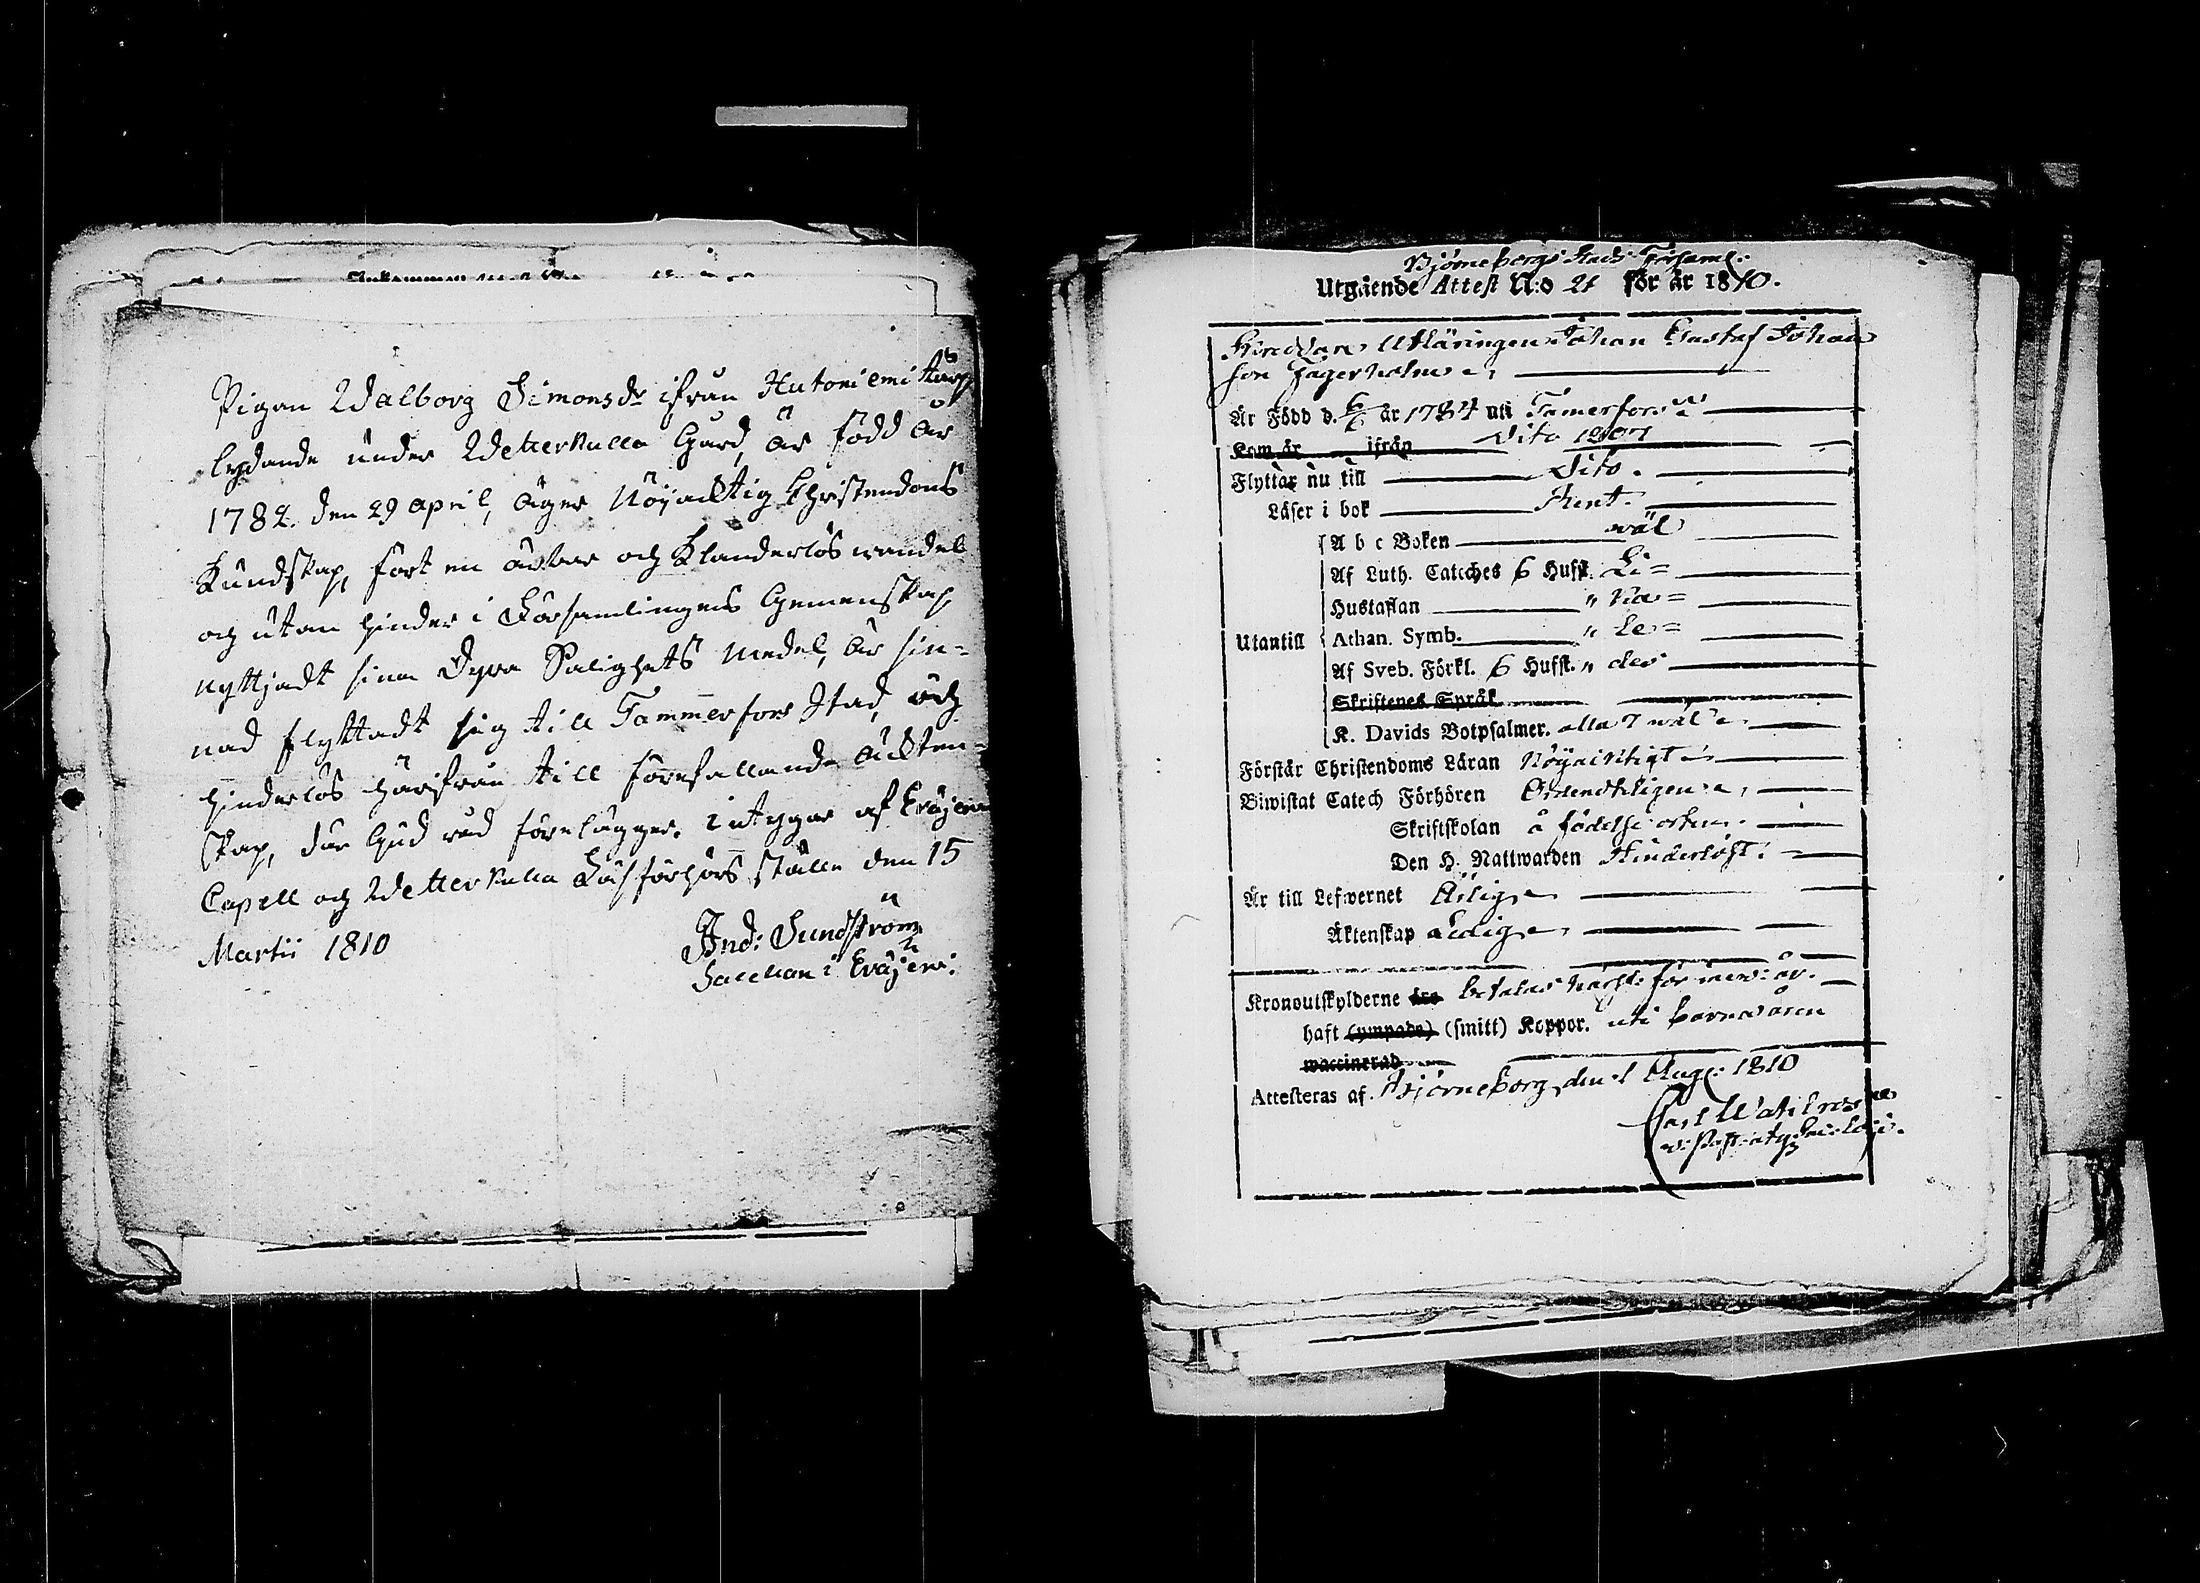 Pigan Walborg Simonsdr ifrån Hutoniemi torp
lydande under Wetterkulla Gård, är född år
1782. den 29 april, äger Nöjacktig Christendoms
Kundskap, fört en ärbar och Klanderlös wandel
och utan hinder i Församlingens Gemenskap
nyttjadt sina Dyra Salighets medel, är sin-
nad flyttadt sig till Tammerfors Stad, och
hinderlös härifrån till förefallande äckten-
skap, där Gud råd förelägger. intygar af Eräjärvi
Capell och Wetterkulla Läsförhörs ställe den 15
Martii 1810
And: Sundström
Sacellan i Eräjerv:
Björneborgs Stads Församl:
Utgående Attest N:o 21 för år 1810.
Utläringen Johan Gustaf Johan
son Jägerholm
Är Född d. 6/6 år 1784 uti Tamerfors
Kom år ifrån Dito 1807
Flyttar nu till Dito.
Läser i bok Rent.
A b c Boken wäl
Af Luth. Cateches 6 Hufst. Li=
Hustaflan " ka=
Utantill Athan. Symb. " Le=
Af Sveb. Förkl. 6 Hufst. " des
Skriftenes Språk
K. Davids Botpsalmer. alla 7 wäl
Förstår Christendoms Läran Nöyacktigt
Biwistat Catech Förhören Ordentligen
Skriftskolan å födelse orten.
Den H. Nattwarden Hinderlöst.
Är till Lefwernet Ärlig
Äktenskap Ledig
Kronoutskylderne äro betalas härst: för inew: år.
haft (ympade) (smitt) Koppor. uti barnaåren
waccinerad
Attesteras af. Björneborg den 1 Aug: 1810
Carl